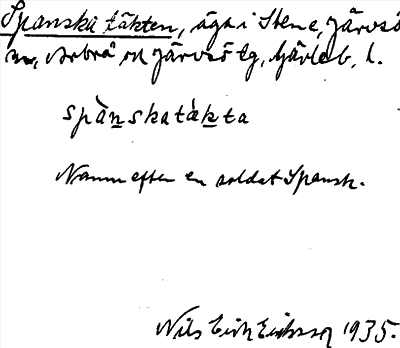 Spanska täkten, äga i Stene, Järvsö
sn, Arbrå och Järvsö tg, Gävleb. l.
spànskatàkta
Namn efter en soldat Spansk.
Nils Erik Eriksson 1935.